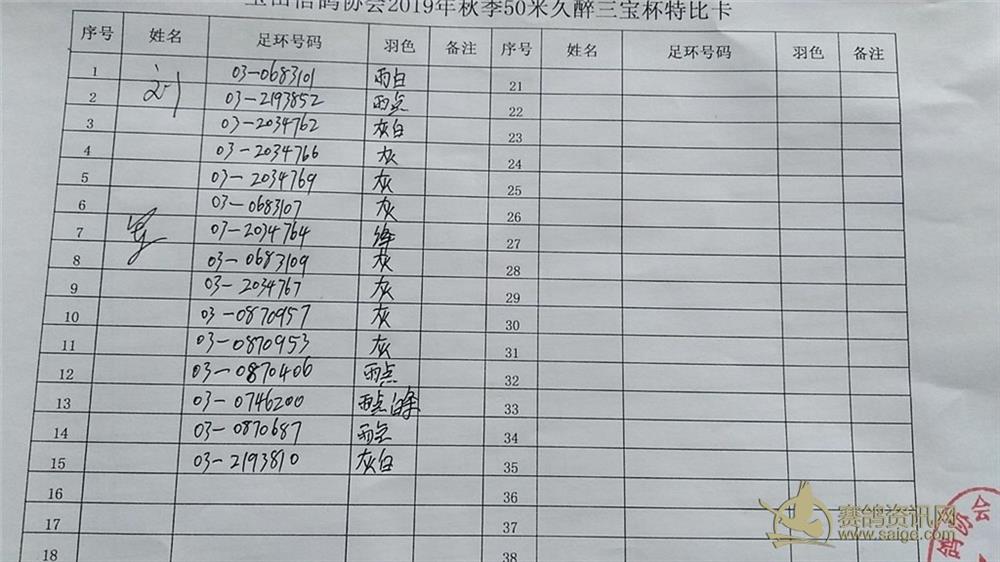 信鸽协会2019年秋季50米久醉三宝杯特比卡
序号 姓名 足环号码 羽色 备注 序号 姓名 足环号码 羽色 备注
1 刘 03-0683101 雨白 21
2 03-2193852 雨点 22
3 03-2034762 灰白 23
4 03-2034766 灰 24
5 03-2034769 灰 25
6 03-0683107 灰 26
7 03-2034764 绛 27
8 03-0683109 灰 28
9 03-2034767 灰 29
10 03-0870957 灰 30
11 03-0870953 灰 31
12 03-0870406 雨点 32
13 03-0746200 雨点白条 33
14 03-0870687 雨点 34
15 03-2193810 灰白 35
16 36
17 37
18 38
赛鸽资讯网
www.saige.com
鸽协会